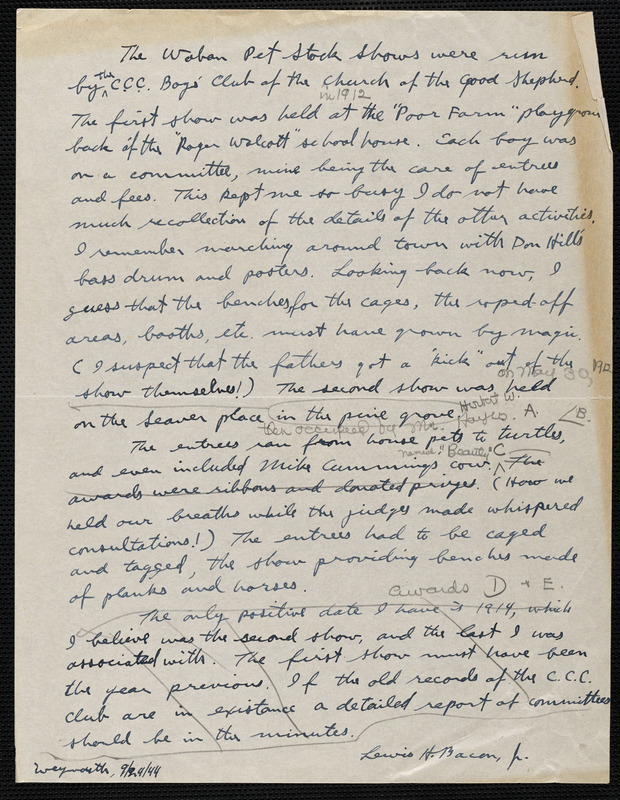 The Waban Pet Stock shows were run
by the C.C.C. Boys' Club of the Church of the Good Shepherd.
in 1912
The first show was held at the "Poor Farm" playgroun
back of the "Roger Wolcott" school house. Each boy was
on a committee, mine being the care of entrees
and fees. This kept me so busy I do not have
much recollection of the details of the other activities.
I remember marching around town with Don Hill's
bass drum and posters. Looking back now, I
guess that the benches, for the cages, the roped-off
areas, booths, etc. must have grown by magic.
(I suspect that the fathers got a "kick" out of the
on May 30, 191
show themselves!) The second show was held
on the Seaver place in the pine grove. Herbert W.
then occupied by Mr. Hayes. A. B.
The entrees ran from house pets to turtles,
named "Beauty" C
and even included Mike Cummings cow. The
awards were ribbons and donated prizes. (How we
held our breaths while the judges made whispered
consultations!) The entrees had to be caged
and tagged, the show providing benches made
of planks and horses.
awards D + E.
The only positive date I have is 1914, which
I believe was the second show, and the last I was
associated with. The first show must have been
the year previous. If the old records of the C.C.C.
Club are in existance a detailed report of committees
should be in the minutes.
Lewis H. Bacon, Jr.
Weymouth, 9/29/44